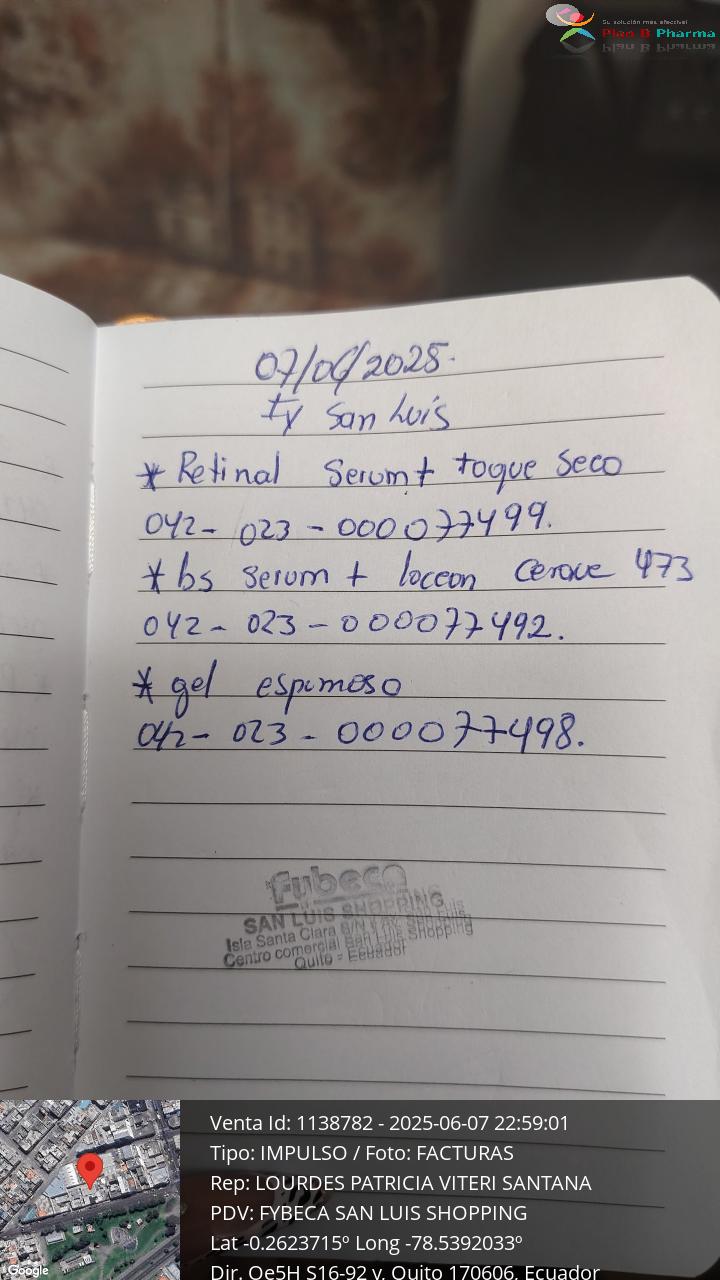 Su solución más efectiva!
Plan B Pharma
07/06/2025.
fy San Luis
* Retinal Serum + toque Seco
042- 023 - 000077499.
* bs serum + locean cerave 473
042 - 023 - 000077492.
* gel espumoso
042- 023 - 000077498.
fybeca
SAN LUIS SHOPPING
Isla Santa Clara S/N y Av. San Luis
Centro comercial San Luis Shopping
Quito - Ecuador
Venta Id: 1138782 - 2025-06-07 22:59:01
Tipo: IMPULSO / Foto: FACTURAS
Rep: LOURDES PATRICIA VITERI SANTANA
PDV: FYBECA SAN LUIS SHOPPING
Lat -0.2623715º Long -78.5392033º
Dir. Oe5H S16-92 y, Quito 170606, Ecuador
Google